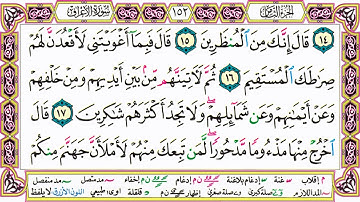 الجزء الثامن ١٥٢ سورة الأعراف
١٤ قَالَ إِنَّكَ مِنَ ٱلْمُنظَرِينَ ١٥ قَالَ فَبِمَآ أَغْوَيْتَنِى لَأَقْعُدَنَّ لَهُمْ
صِرَٰطَكَ ٱلْمُسْتَقِيمَ ١٦ ثُمَّ لَءَاتِيَنَّهُم مِّنۢ بَيْنِ أَيْدِيهِمْ وَمِنْ خَلْفِهِمْ
وَعَنْ أَيْمَٰنِهِمْ وَعَن شَمَآئِلِهِمْ وَلَا تَجِدُ أَكْثَرَهُمْ شَٰكِرِينَ ١٧ قَالَ
ٱخْرُجْ مِنْهَا مَذْءُومًا مَّدْحُورًا لَّمَن تَبِعَكَ مِنْهُمْ لَأَمْلَأَنَّ جَهَنَّمَ مِنكُمْ